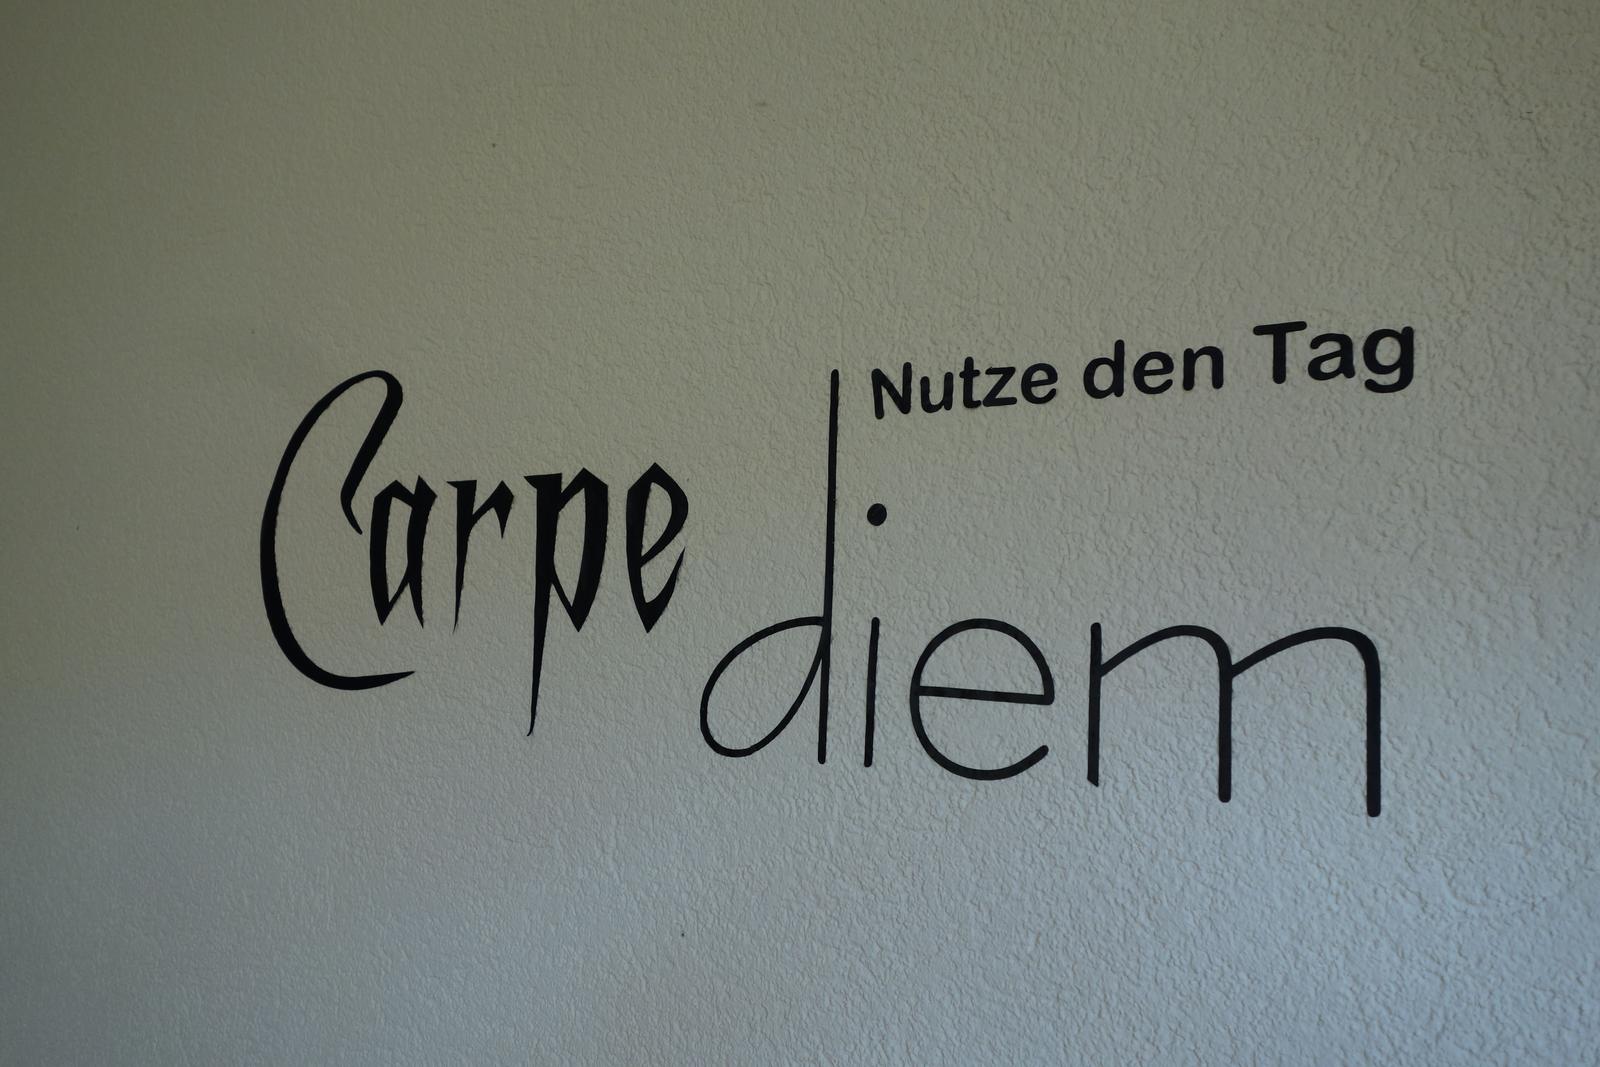 Carpe diem
Nutze den Tag